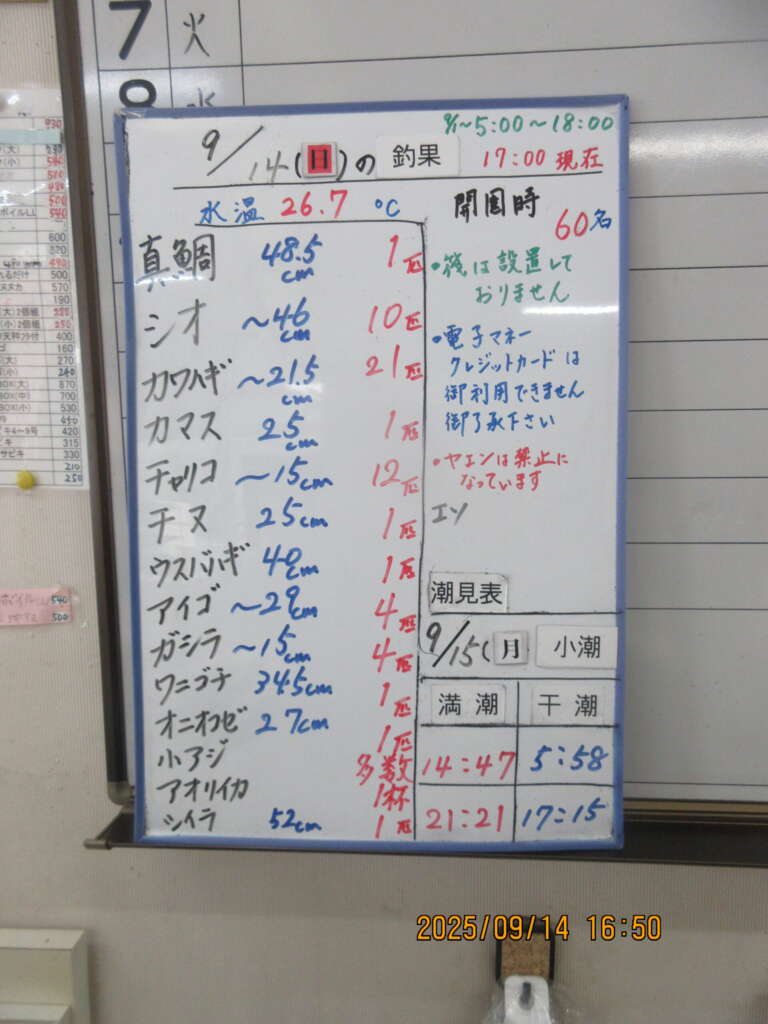 7 火
8 水
9/1~5:00~18:00
9/14(日)の 釣果
17:00 現在
水温 26.7 ℃
開園時
60名
真鯛 48.5cm 1匹
シオ ~46cm 10匹
カワハギ ~21.5cm 21匹
カマス 25cm 1匹
チャリコ ~15cm 12匹
チヌ 25cm 1匹
ウスバハギ 40cm 1匹
アイゴ ~29cm 4匹
ガシラ ~15cm 4匹
ワニゴチ 34.5cm 1匹
オニオコゼ 27cm 1匹
小アジ 多数
アオリイカ 1杯
シイラ 52cm 1匹
・筏は設置して
おりません
・電子マネー
クレジットカードは
御利用できません
御了承下さい
・ヤエンは禁止に
なっています
エソ
潮見表
9/15(月 小潮
満潮 干潮
14:47 5:58
21:21 17:15
600
500
570
190
400
160
270
240
870
700
530
450
420
315
330
210
250
540
500
2025/09/14 16:50